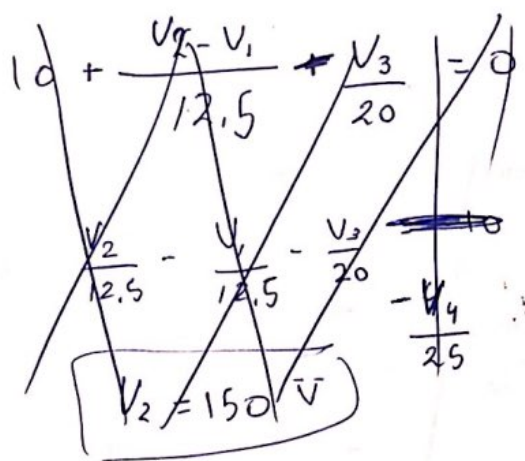 10 + (V2 - V1)/12.5 + V3/20 = 0
V2/12.5 - V1/12.5 - V3/20 - V4/25
V2 = 150 V